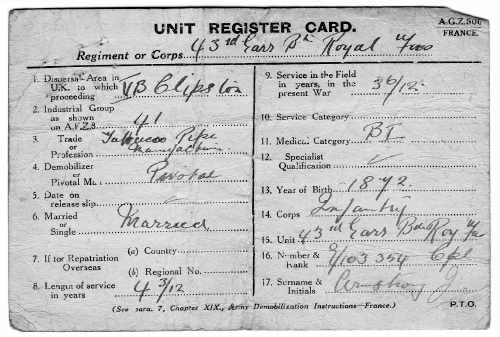 UNIT REGISTER CARD.
A.G.Z. 500
FRANCE.
Regiment or Corps 43rd Garr Bn Royal Fus
1. Dispersal Area in U.K. to which proceeding VB Clipston
2. Industrial Group as shown on A.F.Z.8 41
3. Trade or Profession Tobacco Pipe Manufacturer
4. Demobilizer or Pivotal Man Pivotal
5. Date on release slip
6. Married or Single Married
7. If for Repatriation Overseas
(a) Country
(b) Regional No.
8. Length of service in years 4 3/12
9. Service in the Field in years, in the present War 3 6/12
10. Service Category
11. Medical Category BI
12. Specialist Qualification
13. Year of Birth 1872.
14. Corps Infantry
15. Unit 43rd Garr Bn Roy Fus
16. Number & Rank G/103354 Cpl
17. Surname & Initials Armstrong
(See para. 7, Chapter XIX., Army Demobilization Instructions—France.)
P.T.O.